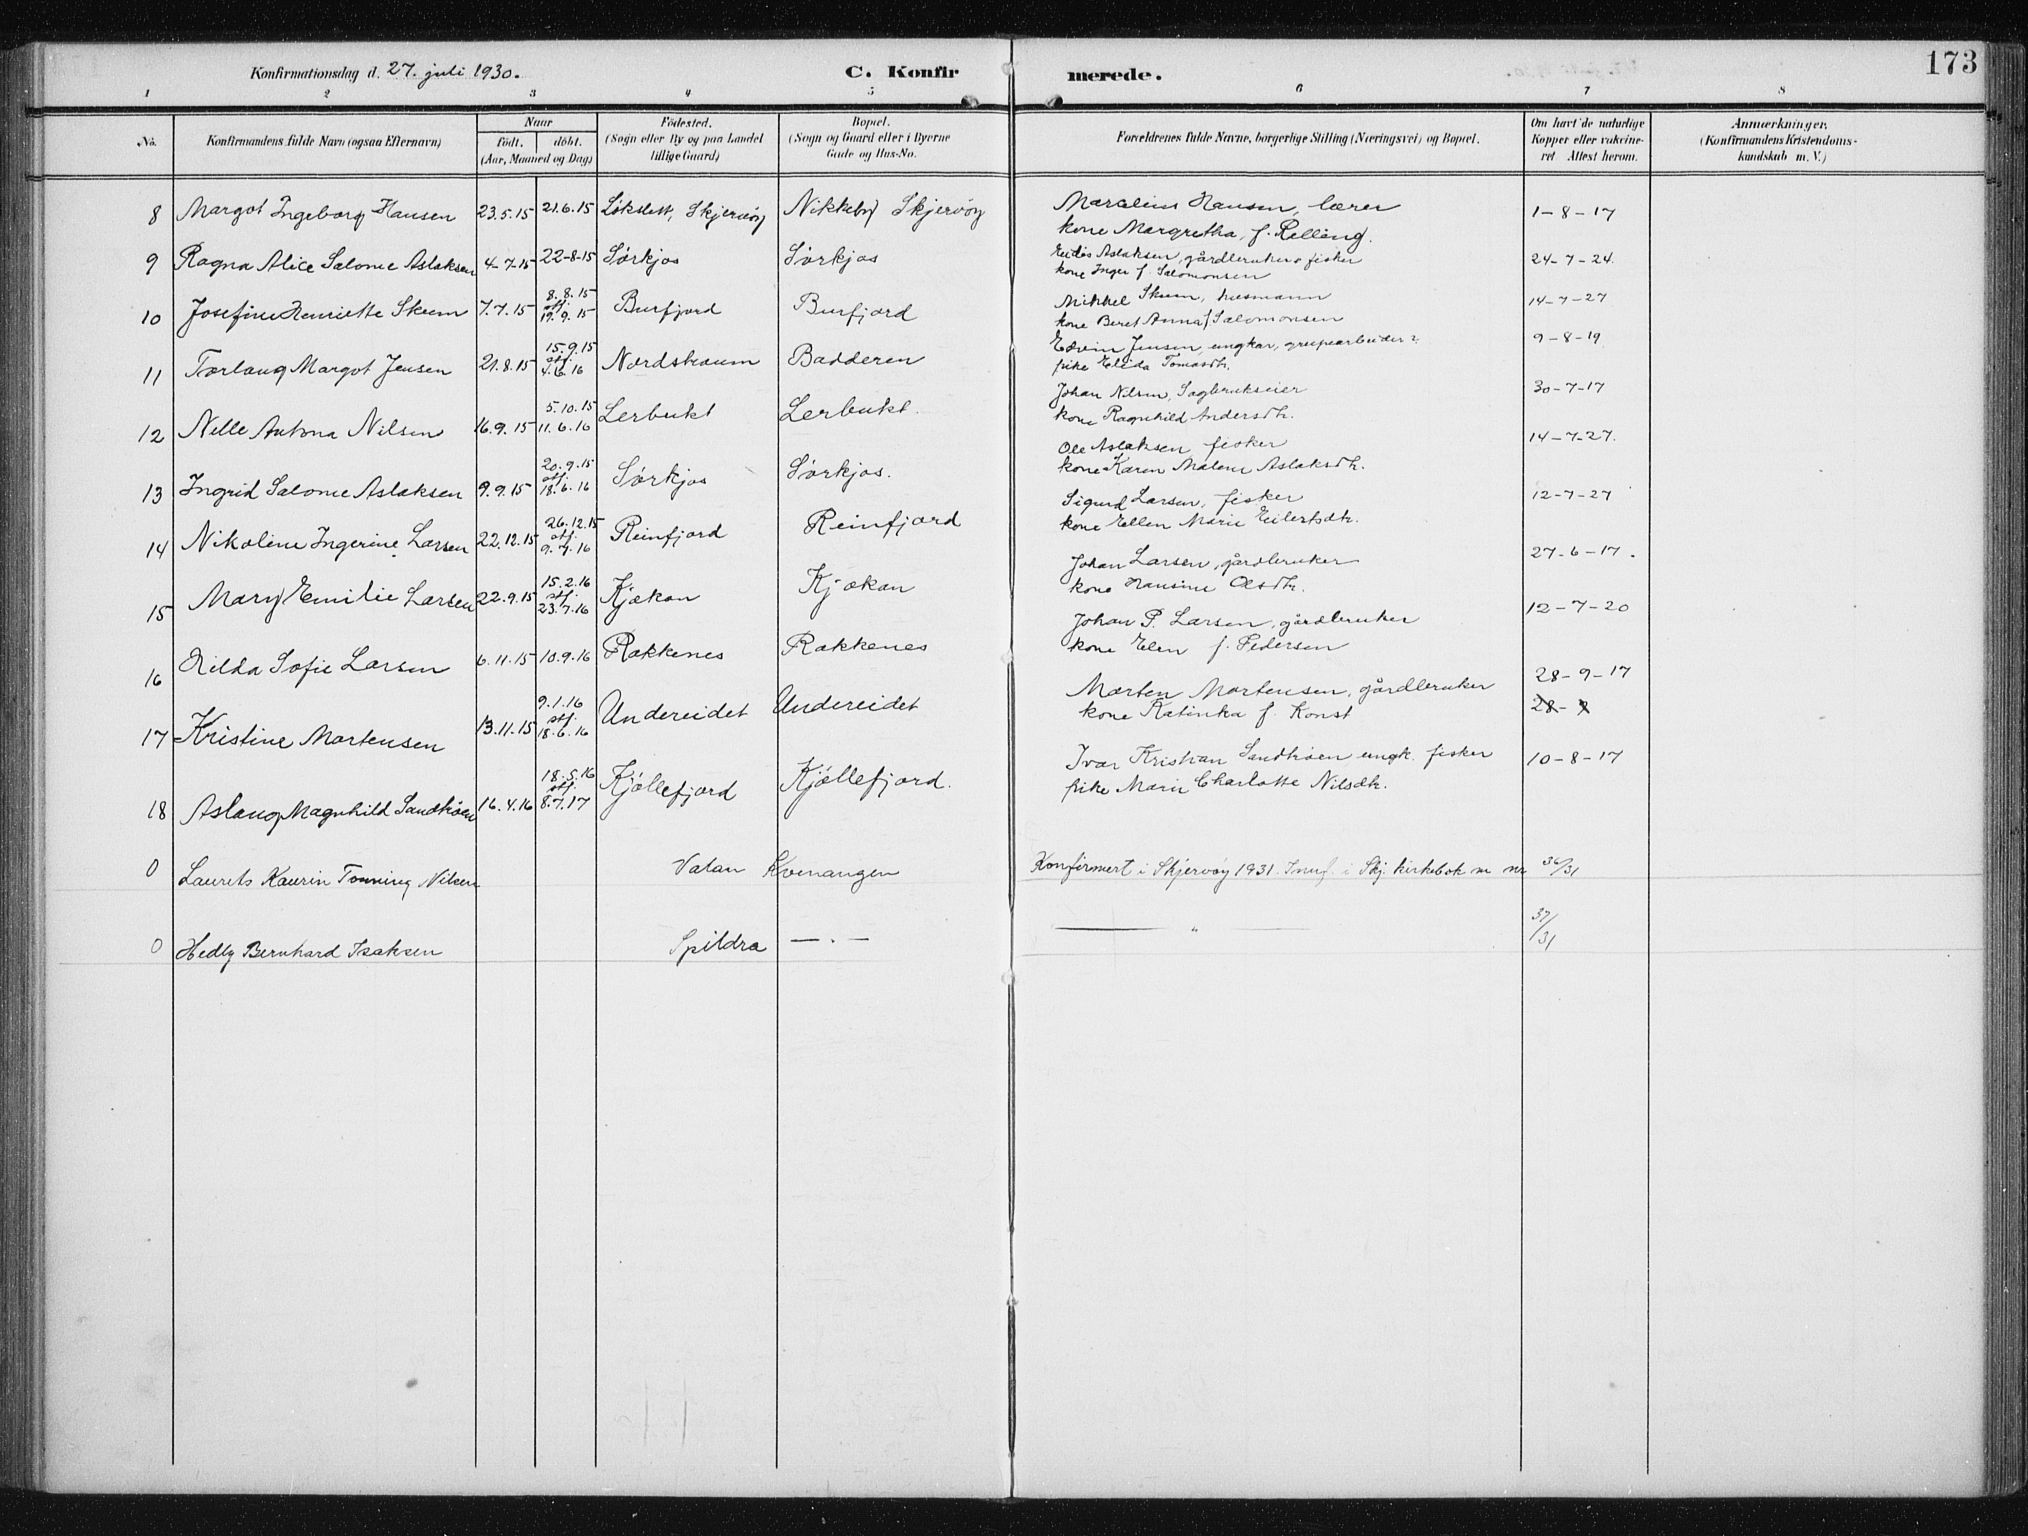 Konfirmationsdag d. 27. juli 1930. C. Konfirmerede. 173
1 2 3 4 5 6 7 8
No. Konfirmandens fulde Navn (ogsaa Efternavn) Naar født. døbt. (Aar, Maaned og Dag) Fødested. (Sogn eller By og paa Landet tillige Gaard) Bopæl. (Sogn og Gaard eller i Byerne Gade og Hus-No. Forældrenes fulde Navne, borgerlige Stilling (Næringsvei) og Bopæl. Om havt de naturlige Kopper eller vakcineret Attest herom. Anmærkninger, (Konfirmandens Kristendomskundskab m. V.)
8 Margot Ingeborg Hansen 23.5.15 21.6.15 Løkslett, Skjervøy Nikkeby Skjervøy Hansen, lærer 1-8-17
kone Margretha, f. Relling.
9 Ragna Alice Salome Aslaksen 4-7-15 22-8-15 Sørkjos Sørkjos Aslaksen, gårdbruker o fisker 24-7-24.
kone Inger f. Salomonsen
10 Josefine Henriette Skum 7.7.15 8.8.15 stf. 19.9.15 Burfjord Burfjord Mikkel Skum, husmann 14-7-27
kone Beret Anna f Salomonsen
11 Torlaug Margot Jensen 21.8.15 15.9.15 stf. 4.6.16 Nordstraum Badderen Edvin Jensen, ungkar, 9-8-19
pike Elida Tomasdtr.
12 Nelle Antona Nilsen 16.9.15 5.10.15 11.6.16 Lerbukt Lerbukt. Johan Nilsen, Sagbrukseier 30-7-17
kone Ragnhild Andersdtr.
13 Ingrid Salome Aslaksen 9.9.15 20.9.15 stf. 18.6.16 Sørkjos Sørkjos. Ole Aslaksen, fisker 14-7-27.
kone Karen Malene Aslaksdtr.
14 Nikoline Ingerine Larsen 22.12.15 26.12.15 stf. 9.7.16 Reinfjord Reinfjord Sigurd Larsen, fisker 12-7-27
kone Ellen Marie Eilertsdtr.
15 Mary Emilie Larsen 22.9.15 15.2.16 stf. 23.7.16 Kjækan Kjækan Johan Larsen, gårdbruker 27-6-17.
kone Hansine Olsdtr.
16 Hilda Sofie Larsen 6.11.15 10.9.16 Rakkenes Rakkenes Johan P. Larsen, gårdbruker 12-7-20
kone Elen f. Pedersen
17 Kristine Mortensen 13.11.15 9.1.16 stf. 18.6.16 Undereidet Undereidet Morten Mortensen, gårdbruker 28-9-17
kone Katinka f. Konst 28-
18 Aslaug Magnhild Sandhåen 16.4.16 18.5.16 stf. 8.7.17 Kjøllefjord Kjøllefjord. Ivar Kristian Sandhåen ungk. fisker 10-8-17
pike Marie Charlotte Nilsdtr.
0 Laurets Kaurin Tonning Nilsen Valan Kvenangen Konfirmert i Skjervøy 1931. Innf. i Skj. kirkebok m nr 36/31
0 Hedly Bernhard Isaksen Spildra —.— — " — 37/31